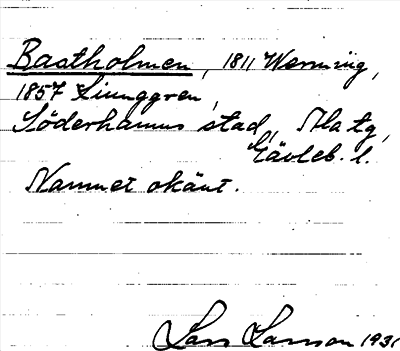 Bastholmen, 1811 Werming,
1857 Ljunggren,
Söderhamns stad, Ala tg,
Gävleb. l.
Namnet okänt.
Lars Larson 1931